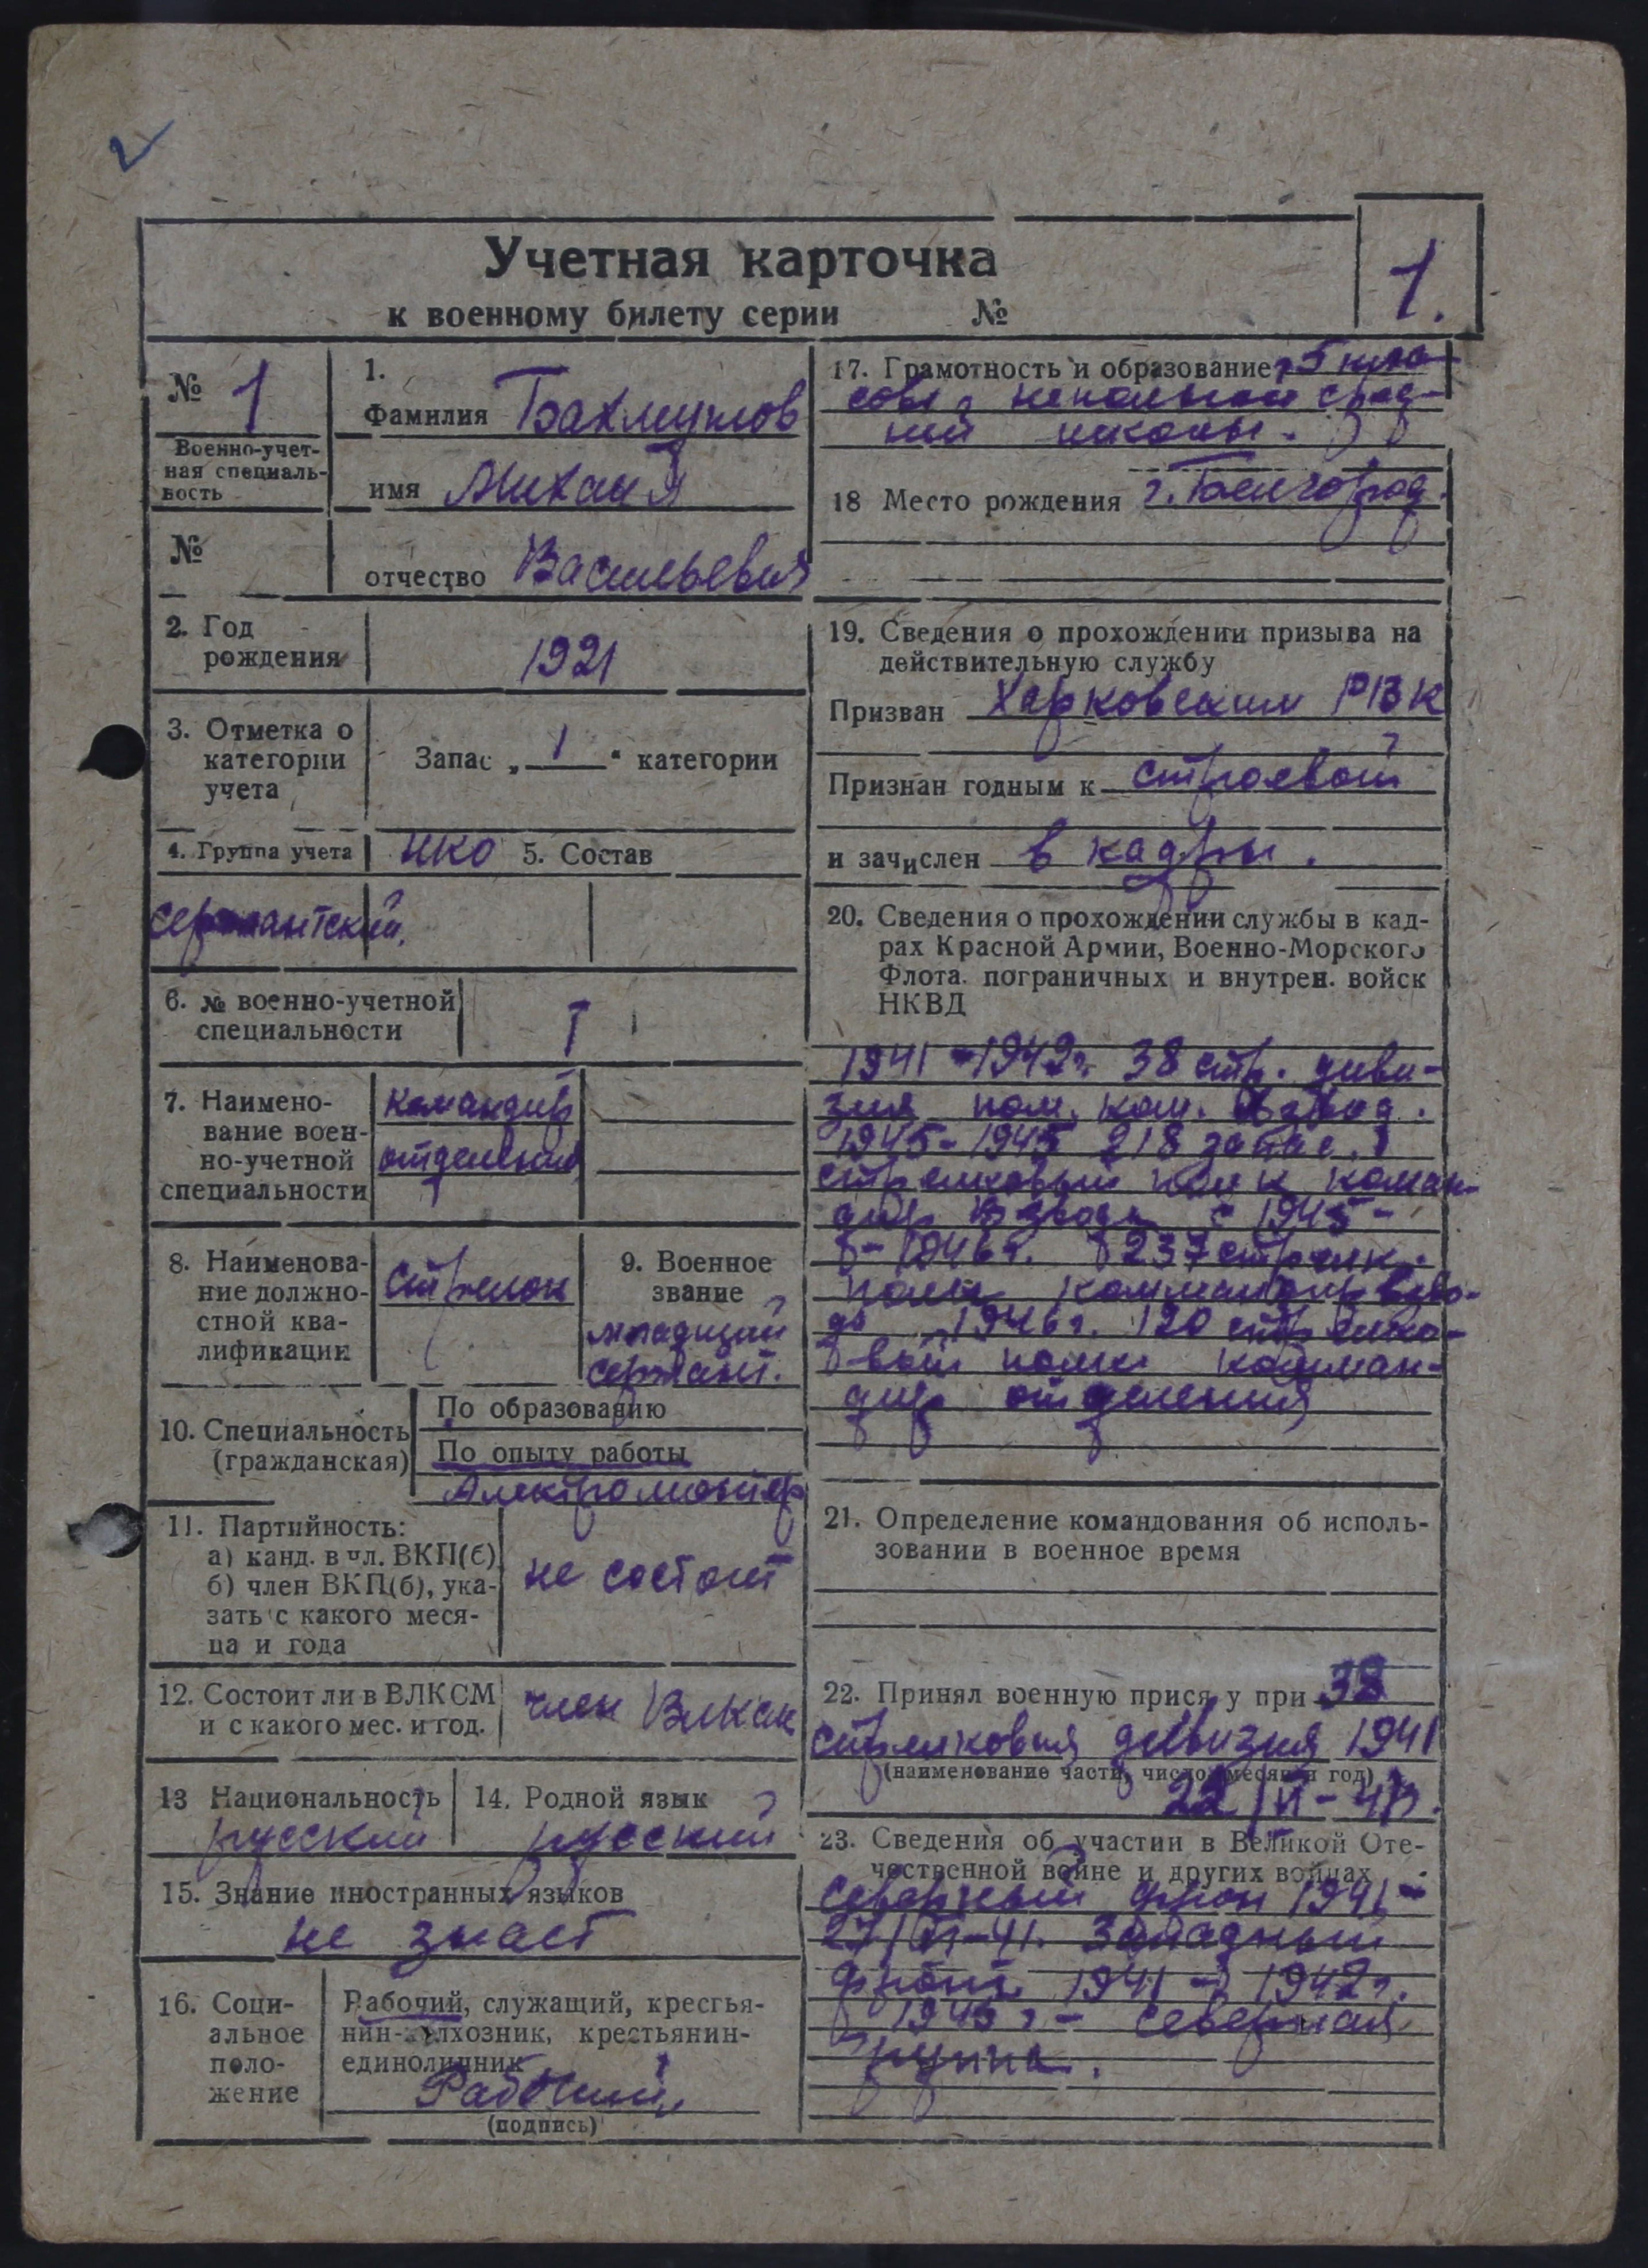 2
Учетная карточка
к военному билету серии №
1.
№ 1
Военно-учет-
ная специаль-
ность
№
1.
Фамилия Бахмутов
имя Михаил
отчество Васильевич
2. Год
рождения
1921
3. Отметка о
категории
учета
Запас „ 1 “ категории
4. Группа учета НКО 5. Состав
сержантский.
6. № военно-учетной
специальности
1
7. Наимено-
вание воен-
но-учетной
специальности
командир
отделения
8. Наименова-
ние должно-
стной ква-
лификации
стрелок
9. Военное
звание
младший
сержант.
10. Специальность
(гражданская)
По образованию
По опыту работы
Электромонтер
11. Партийность:
а) канд. в чл. ВКП(б)
б) член ВКП(б), ука-
зать с какого меся-
ца и года
не состоит
12. Состоит ли в ВЛКСМ
и с какого мес. и год.
член
13 Национальность
русский
14. Родной язык
русский
15. Знание иностранных языков
не знает
16. Соци-
альное
поло-
жение
Рабочий, служащий, крестья-
нин-колхозник, крестьянин-
единоличник
Рабочий
(подпись)
17. Грамотность и образование 5 кла-
неполной сред-
ней школы.
18 Место рождения г. Белгород.
19. Сведения о прохождении призыва на
действительную службу
Призван Харковским РВК
Признан годным к строевой
и зачислен в кадры.
20. Сведения о прохождении службы в кад-
рах Красной Армии, Военно-Морского
Флота. пограничных и внутрен. войск
НКВД
1941-1942г. 38 стр. диви-
зия пом. ком. взвод.
1945-1945 218 запас.
стрелковый полк коман-
дир взвода с 1945-
1946г. 237 стрелк.
полк коммандир взво-
да 1946г. 120 стрелко-
вый полк комман-
дир отделения
21. Определение командования об исполь-
зовании в военное время
22. Принял военную присягу при 38
стрелковая дивизия 1941
(наименование части, число, месяц и год)
22/VI-41г.
23. Сведения об участии в Великой Оте-
чественной войне и других войнах
Северный фрон 1941-
27/VI-41. Западный
фронт 1941-1942г.
1945г - северная
группа.